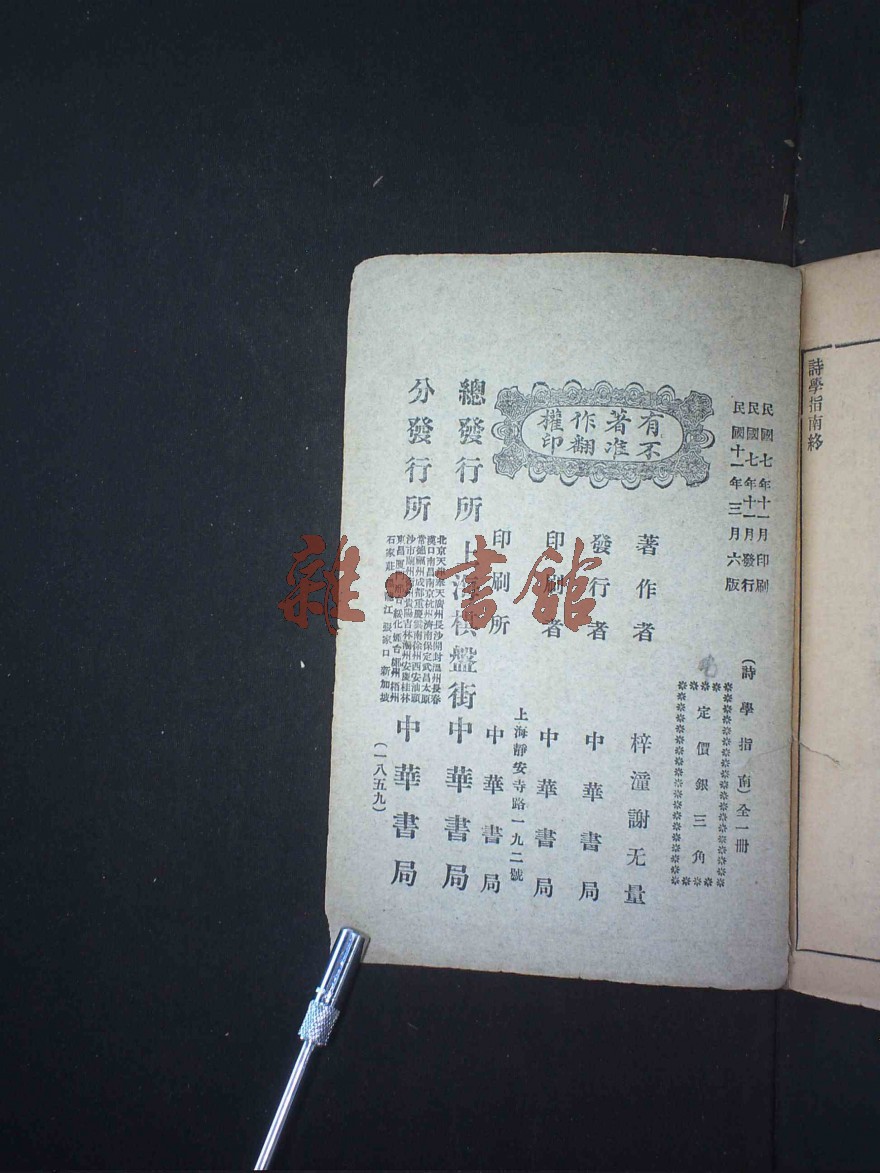 詩學指南終
民國七年十一月印刷
民國七年十一月發行
民國十一年三月六版
(詩學指南)全一冊
定價銀三角
有不
著准
作翻
權印
著作者 梓潼謝无量
發行者 中華書局
印刷者 中華書局
上海靜安寺路一九二號
印刷所 中華書局
總發行所 上海棋盤街 中華書局
分發行所 中華書局
北京天津奉天廣州長沙開封溫州長春
漢口南昌南京杭州濟南保定武昌太原
常德 州成都重慶雲南徐州西安汕頭
沙市 州 州貴陽吉林 州安慶桂林
東昌廈 台綏化煙台 州梧州
石家莊 江張家口新加坡
(一八五九)
雜·書館